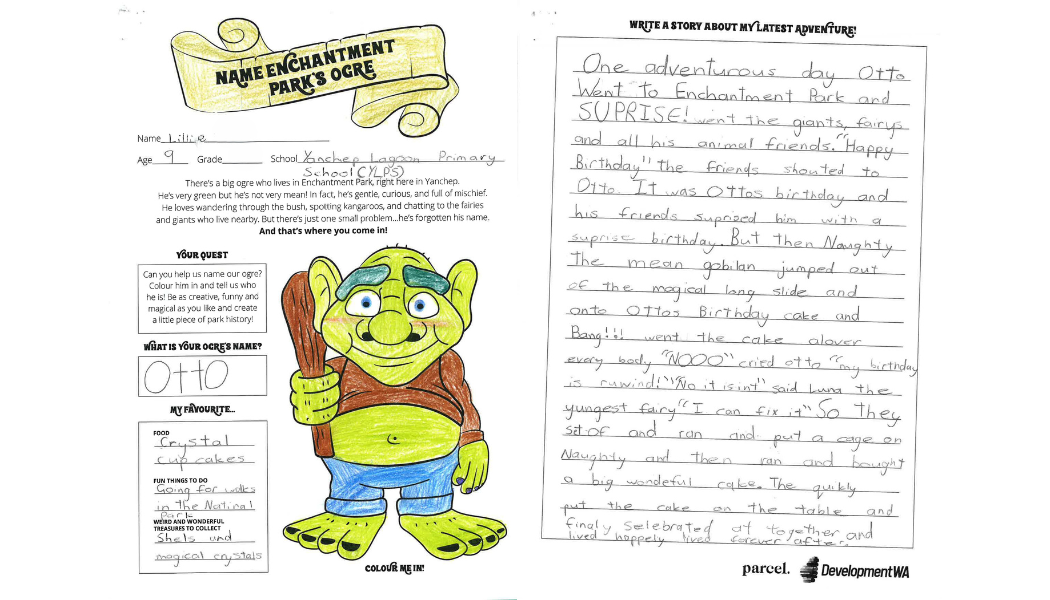 NAME ENCHANTMENT
PARK'S OGRE
Name Lillie
Age 9 Grade School Yanchep Lagoon Primary
School (YLPS)
There's a big ogre who lives in Enchantment Park, right here in Yanchep.
He's very green but he's not very mean! In fact, he's gentle, curious, and full of mischief.
He loves wandering through the bush, spotting kangaroos, and chatting to the fairies
and giants who live nearby. But there's just one small problem...he's forgotten his name.
And that's where you come in!
YOUR QUEST
Can you help us name our ogre?
Colour him in and tell us who
he is! Be as creative, funny and
magical as you like and create
a little piece of park history!
WHAT IS YOUR OGRE'S NAME?
Otto
MY FAVOURITE...
FOOD
Crystal
cup cakes
FUN THINGS TO DO
Going for walks
in the Natiral
Park
WEIRD AND WONDERFUL
TREASURES TO COLLECT
Shels und
magical crystals
COLOUR ME IN!
WRITE A STORY ABOUT MY LATEST ADVENTURE!
One adventurous day Otto
Went to Enchantment Park and
SUPRISE! went the giants, fairys
and all his animal friends. "Happy
Birthday" the friends shouted to
Otto. It was Ottos birthday and
his friends suprized him with a
suprise birthday. But then Naughty
the mean gobilan jumped out
of the magical long slide and
onto Ottos Birthday cake and
Bang!!! went the cake alover
every body "NOOO" cried otto "my birthday
is ruwind!" "No it isint" said Luna the
yungest fairy "I can fix it" So they
set of and ran and put a cage on
Naughty and then ran and bought
a big wondeful cake. The quikly
put the cake on the table and
finaly selebrated at together and
lived happely lived forever after.
parcel. DevelopmentWA